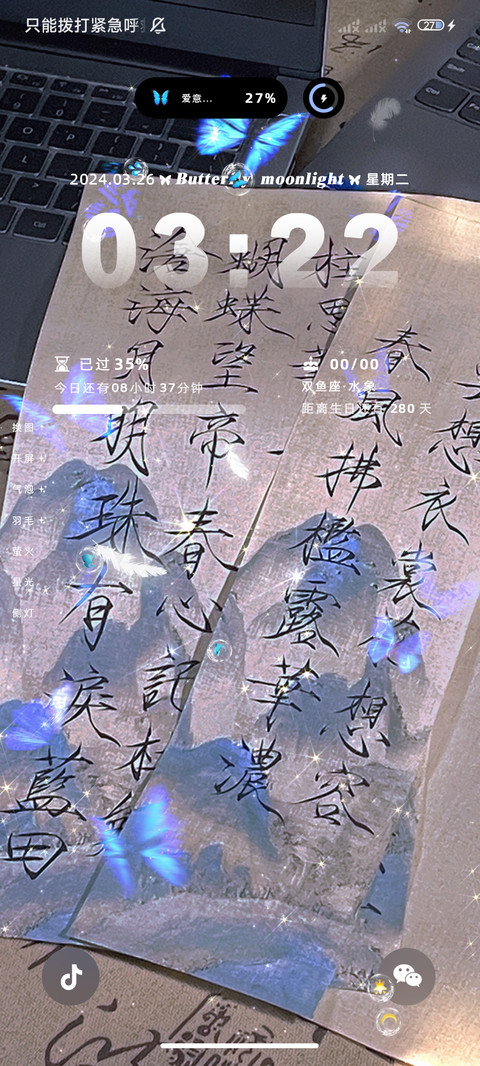 只能拨打紧急呼
27
爱意... 27%
2024.03.26 Butterfly moonlight 星期二
03:22
已过 35%
今日还有08小时37分钟
00/00
双鱼座·水象
距离生日还有 280 天
换图
开屏
气泡
羽毛
萤火
星光
侧灯
想
衣裳花想容
春風拂檻露華濃
柱思
蝴蝶望帝春心託杜
滄海月明珠有淚藍田